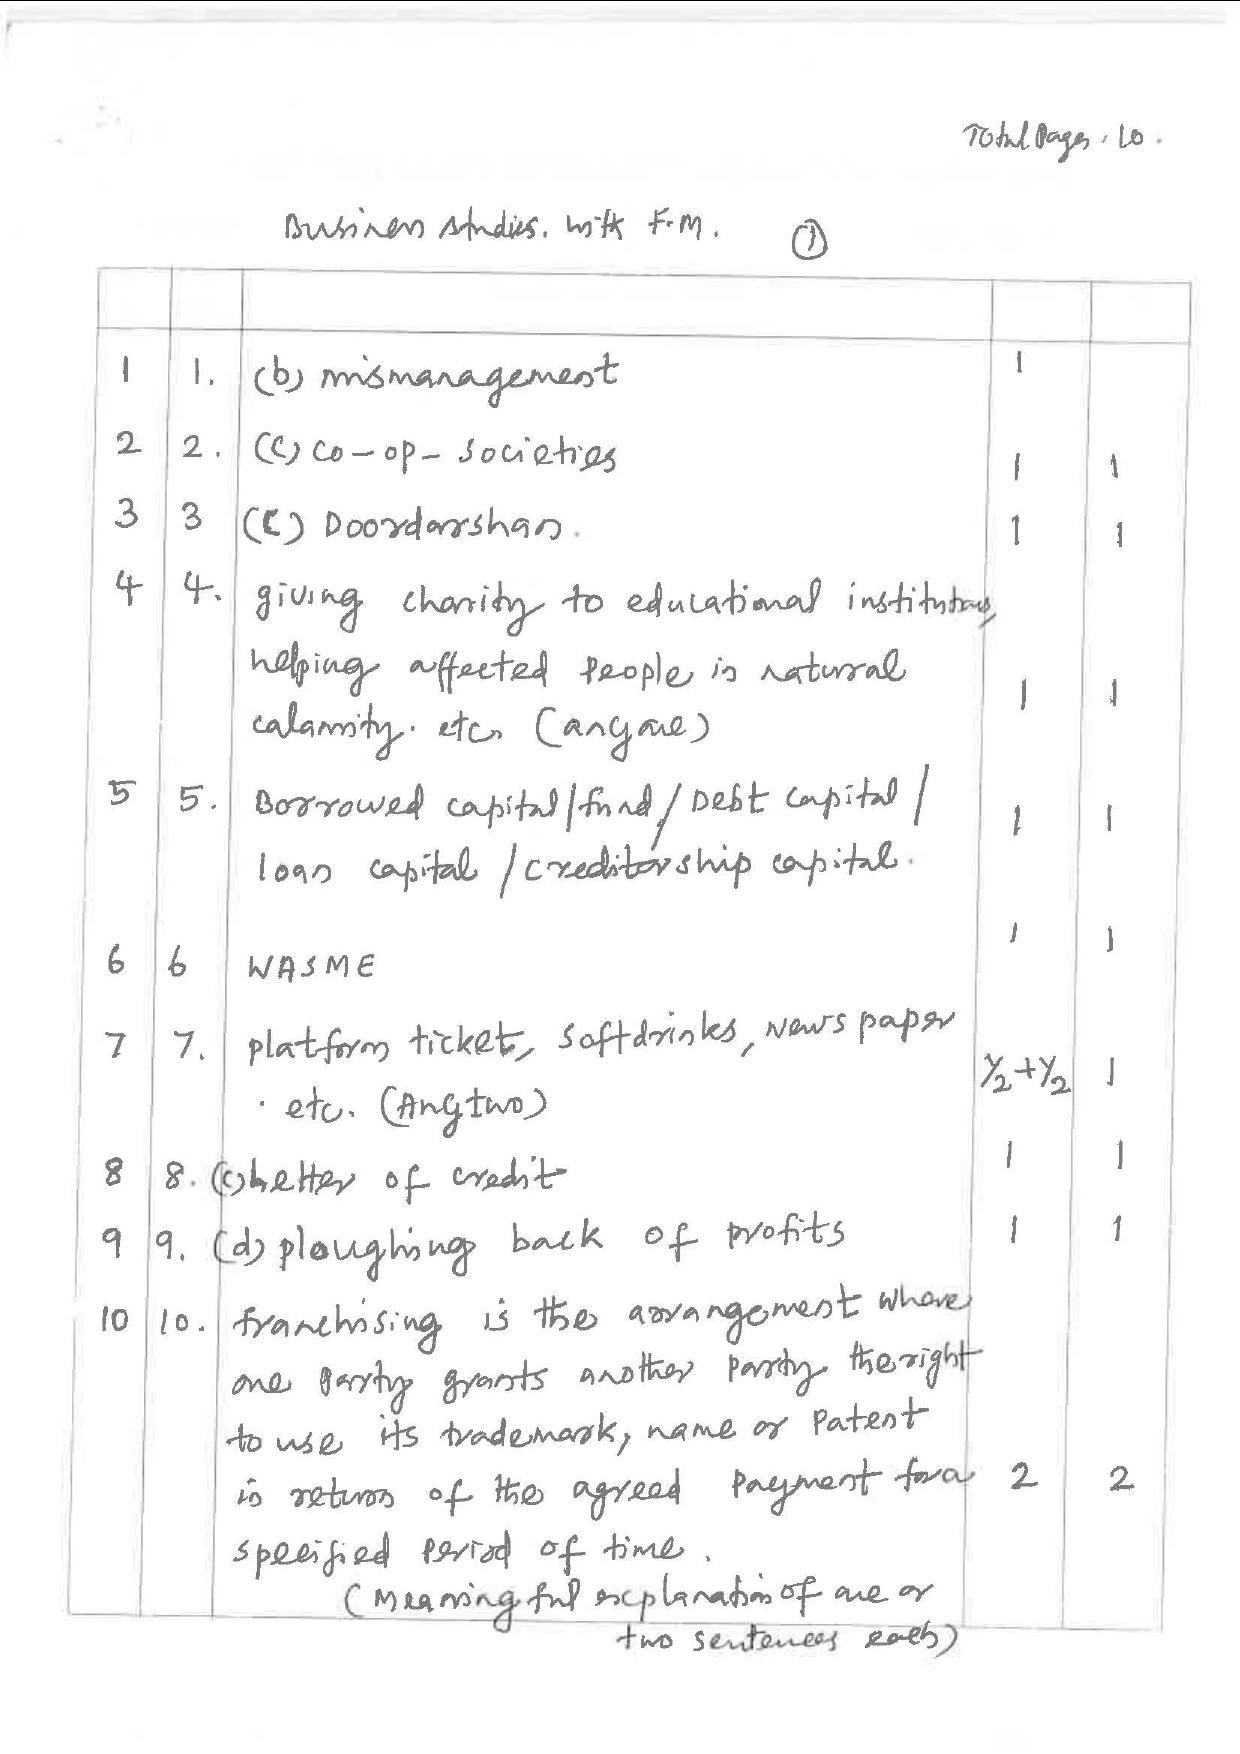 Total Pages. 10.
Business Studies. with F.M. ①
1 1. (b) mismanagement 1
2 2. (c) co-op- societies 1 1
3 3 (c) Doordarshan. 1 1
4 4. giving charity to educational institutions,
helping affected people in natural
calamity. etc. (any one) 1 1
5 5. Borrowed capital/fund/Debt capital/
loan capital/creditorship capital. 1 1
6 6 WASME 1 1
7 7. platform ticket, softdrinks, News paper
. etc. (Any two) 1/2+1/2 1
8 8. (c) Letter of credit 1 1
9 9. (d) ploughing back of profits 1 1
10 10. franchising is the arrangement where
one party grants another party the right
to use its trademark, name or patent
in return of the agreed payment for a 2 2
specified period of time.
(Meaningful explanation of one or
two sentences each)